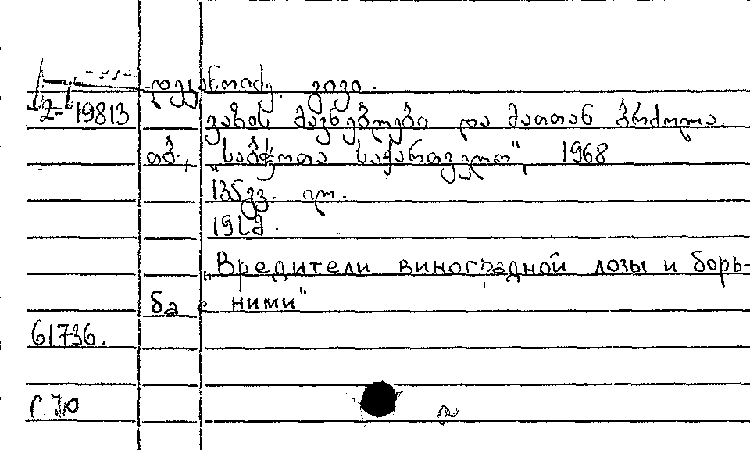 დეკანოიძე. გივი.
2-19813 ვაზის მავნებლები და მათთან ბრძოლა.
თბ., "საბჭოთა საქართველო", 1968
135გვ. ილ.
"Вредители виноградной лозы и борь-
ба с ними"
61736.